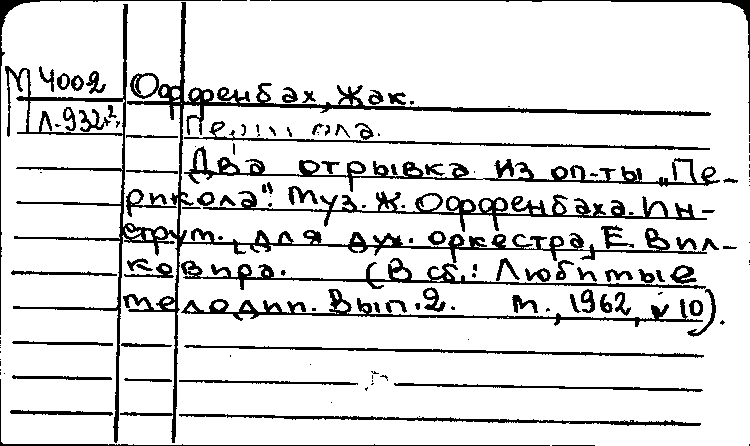 М 4002 Оффенбах, Жак.
Л-932
Два отрывка из оп-ты „Пе-
рикола". Муз. Ж. Оффенбаха. Ин-
струм. для дух. оркестра, Е. Вил-
ковира. (В сб.: Любимые
мелодии. Вып. 2. М., 1962, № 10).